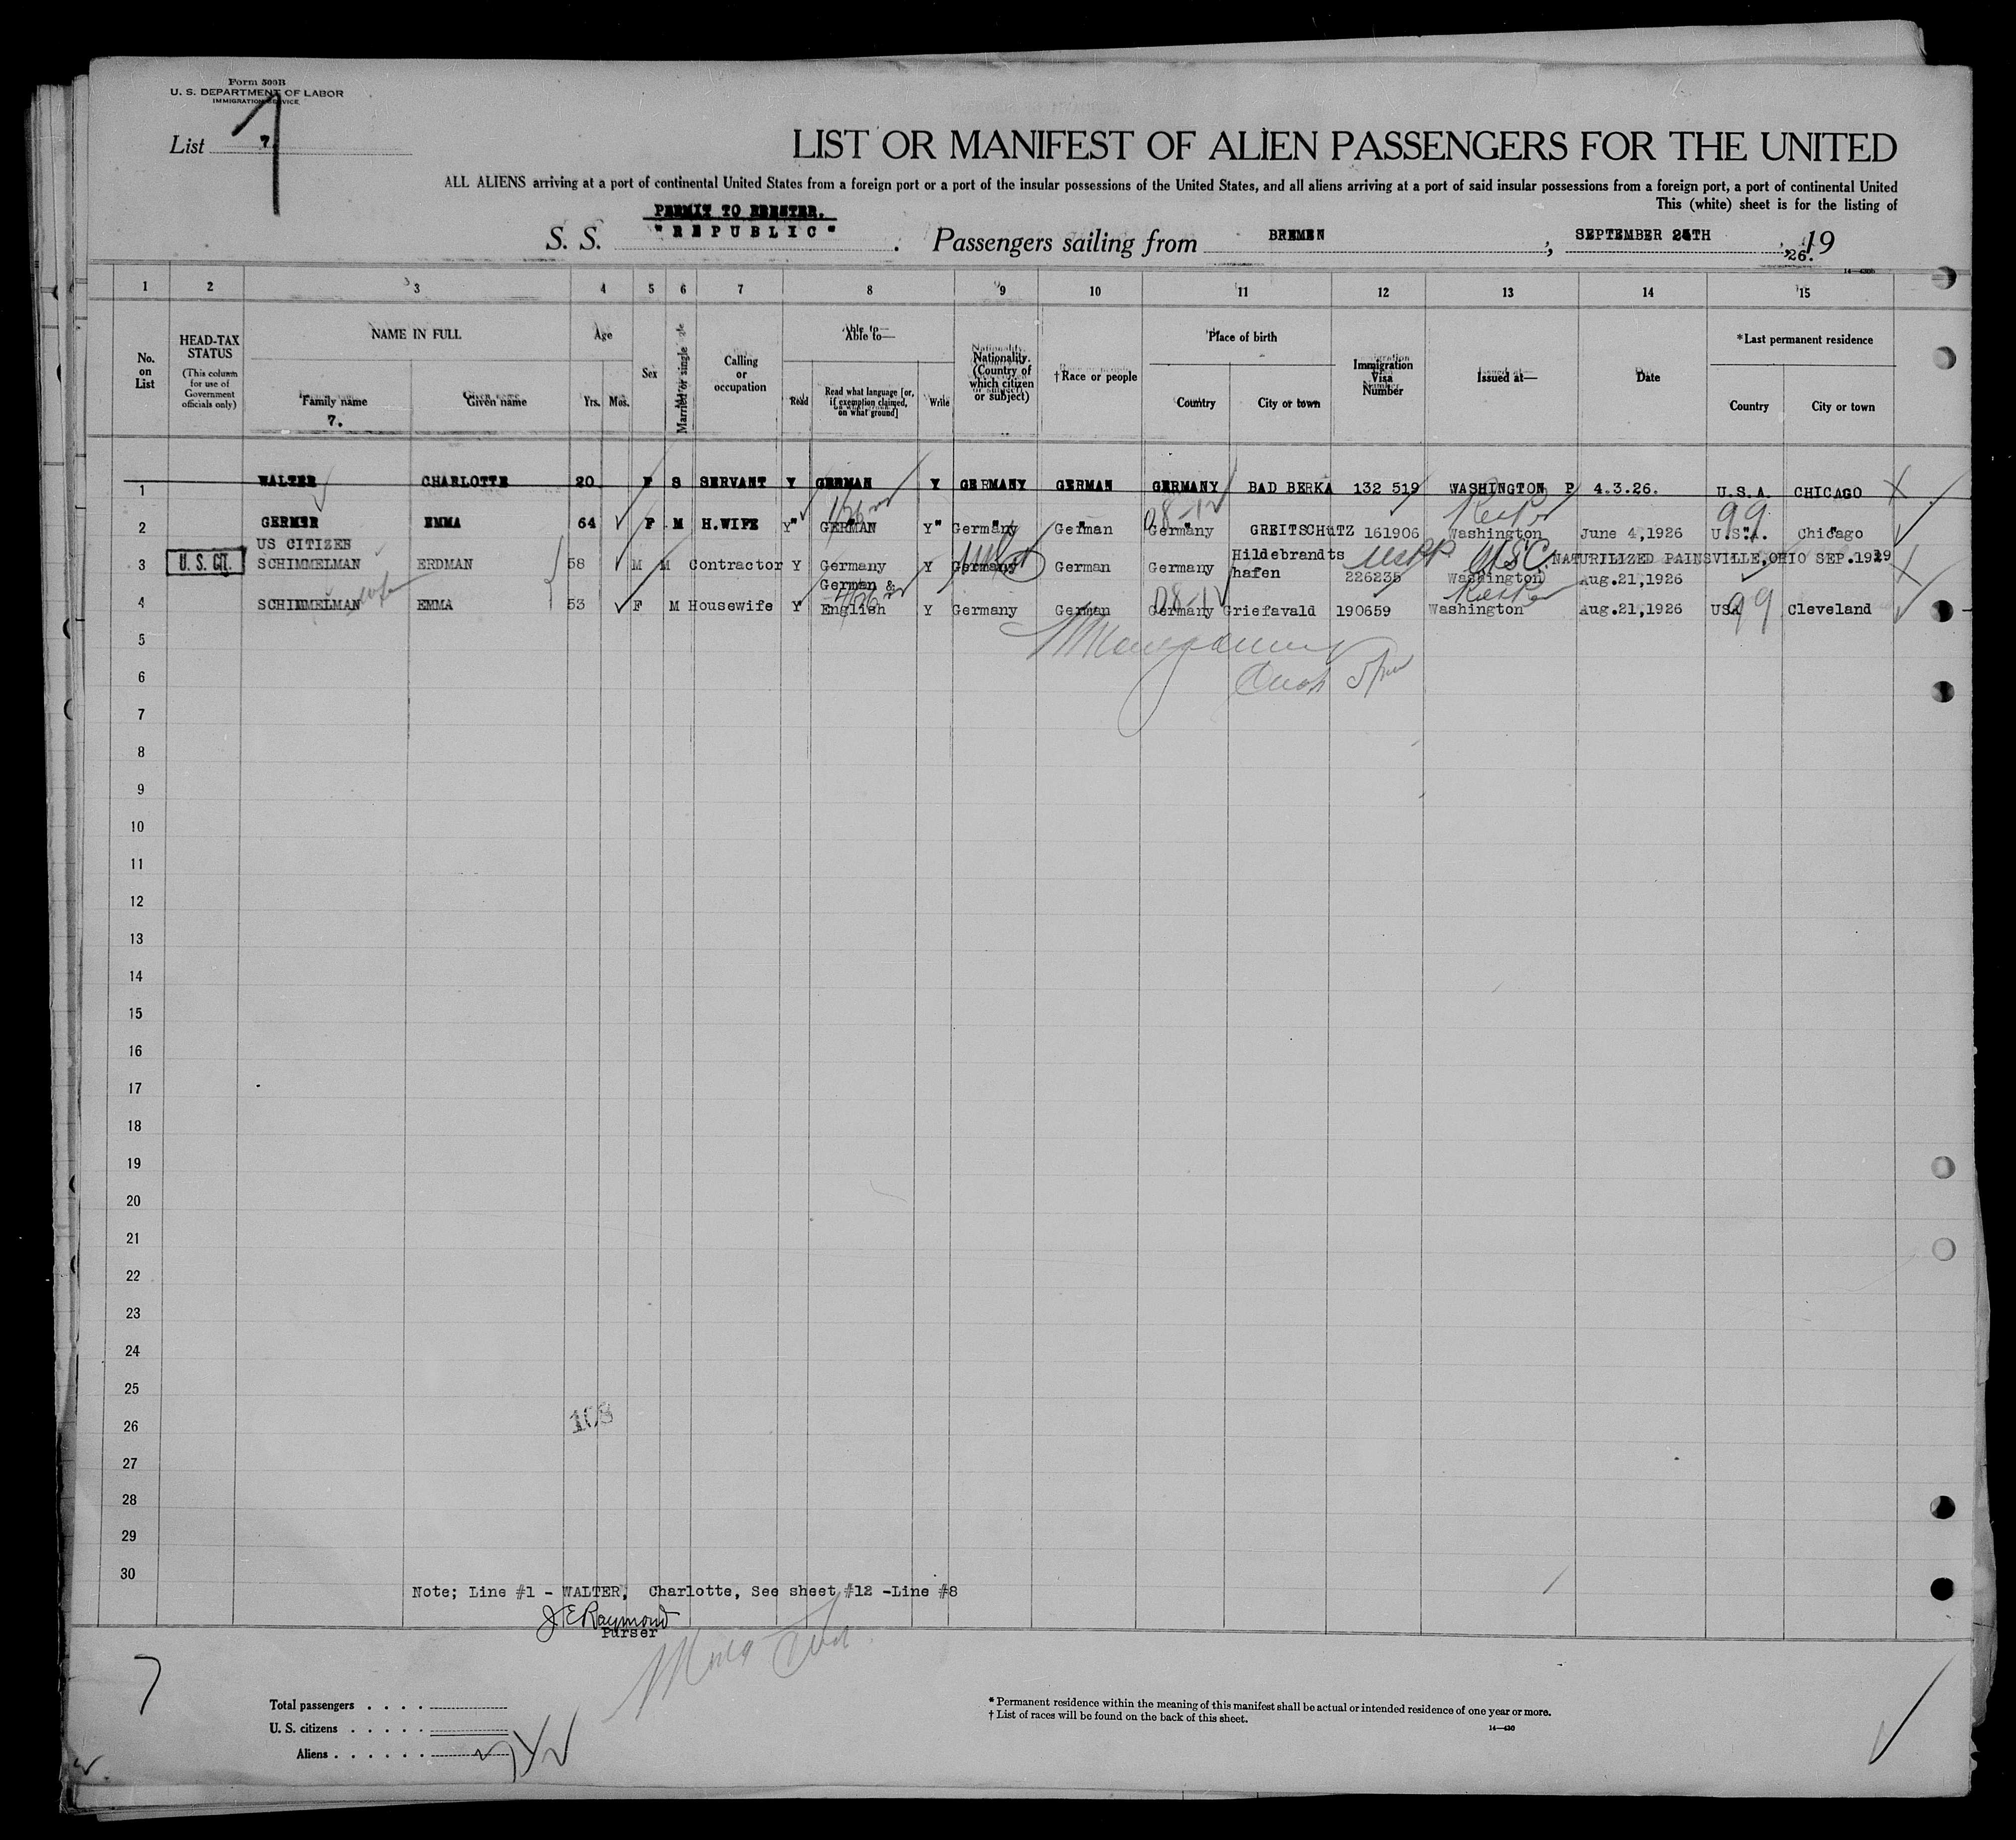 Form 500B
U. S. DEPARTMENT OF LABOR
IMMIGRATION SERVICE
List 7
LIST OR MANIFEST OF ALIEN PASSENGERS FOR THE UNITED
ALL ALIENS arriving at a port of continental United States from a foreign port or a port of the insular possessions of the United States, and all aliens arriving at a port of said insular possessions from a foreign port, a port of continental United
This (white) sheet is for the listing of
PERMIT TO REENTER.
S. S. "REPUBLIC". Passengers sailing from BREMEN, SEPTEMBER 25TH, 19 26.
1 2 3 4 5 6 7 8 9 10 11 12 13 14 15
No. on List
HEAD-TAX STATUS (This column for use of Government officials only)
NAME IN FULL
Family name
7.
Given name
Age
Yrs. Mos.
Sex
Married or single
Calling or occupation
Able to—
Read
Read what language [or, if exemption claimed, on what ground]
Write
Nationality. (Country of which citizen or subject)
†Race or people
Place of birth
Country
City or town
Immigration Visa Number
Issued at—
Date
*Last permanent residence
Country
City or town
1 WALTER CHARLOTTE 20 F S SERVANT Y GERMAN Y GERMANY GERMAN GERMANY BAD BERKA 132 519 WASHINGTON P 4.3.26. U.S.A. CHICAGO
2 GERMER EMMA 64 F M H.WIFE Y" GERMAN Y" Germany German Germany GREITSCHUTZ 161906 Washington June 4,1926 U.S.A. Chicago
US CITIZEN
3 U. S. CIT. SCHIMMELMAN ERDMAN 58 M M Contractor Y Germany Y Germany German Germany Hildebrandts hafen 226235 USPP USC. Washington NATURILIZED PAINSVILLE,OHIO SEP.19 Aug.21,1926
4 SCHIMMELMAN wife EMMA 53 F M Housewife Y German & English Y Germany German Germany Griefavald 190659 Washington Aug.21,1926 USA 99 Cleveland
5
6
7
8
9
10
11
12
13
14
15
16
17
18
19
20
21
22
23
24
25
108
26
27
28
29
30
Note; Line #1 - WALTER, Charlotte, See sheet #12 -Line #8
J E Raymond
Purser
7
Total passengers
U. S. citizens
Aliens
* Permanent residence within the meaning of this manifest shall be actual or intended residence of one year or more.
† List of races will be found on the back of this sheet.
14—430